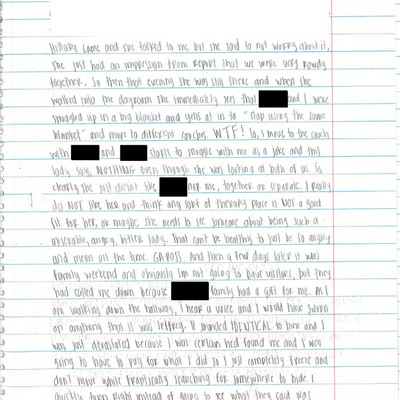 Hillary came and she talked to me but she said to not worry about it,
she just had an impression from report that we were very rowdy
together. So then that evening she was still there and when she
walked into the dayroom she immediately sees that and I were
snuggled up in a big blanket and yells at us to "stop using the same
blanket" and move to different couches. WTF! So, I move to the couch
with and starts to snuggle with me as a joke and this
lady says NOTHING even though she was looking at both of us. So
clearly she just didn't like nor me, together or separate. I really
do NOT like her and think any sort of therapy place is NOT a good
fit for her, or maybe she needs to see someone about being such a
miserable, angry, bitter lady. That can't be healthy to just be so angry
and mean all the time. GROSS. And then a few days later it was
family weekend and obviously I'm not going to have visitors, but they
had called me down because family had a gift for me. As I
am walking down the hallway, I hear a voice and I would have sworn
on anything that it was Jeffrey. It sounded IDENTICAL to him and I
was just devastated because I was certain he'd found me and I was
going to have to pay for what I did so I just completely freeze and
don't move while frantically searching for somewhere to hide. I
quickly turn right instead of going to see what they said was